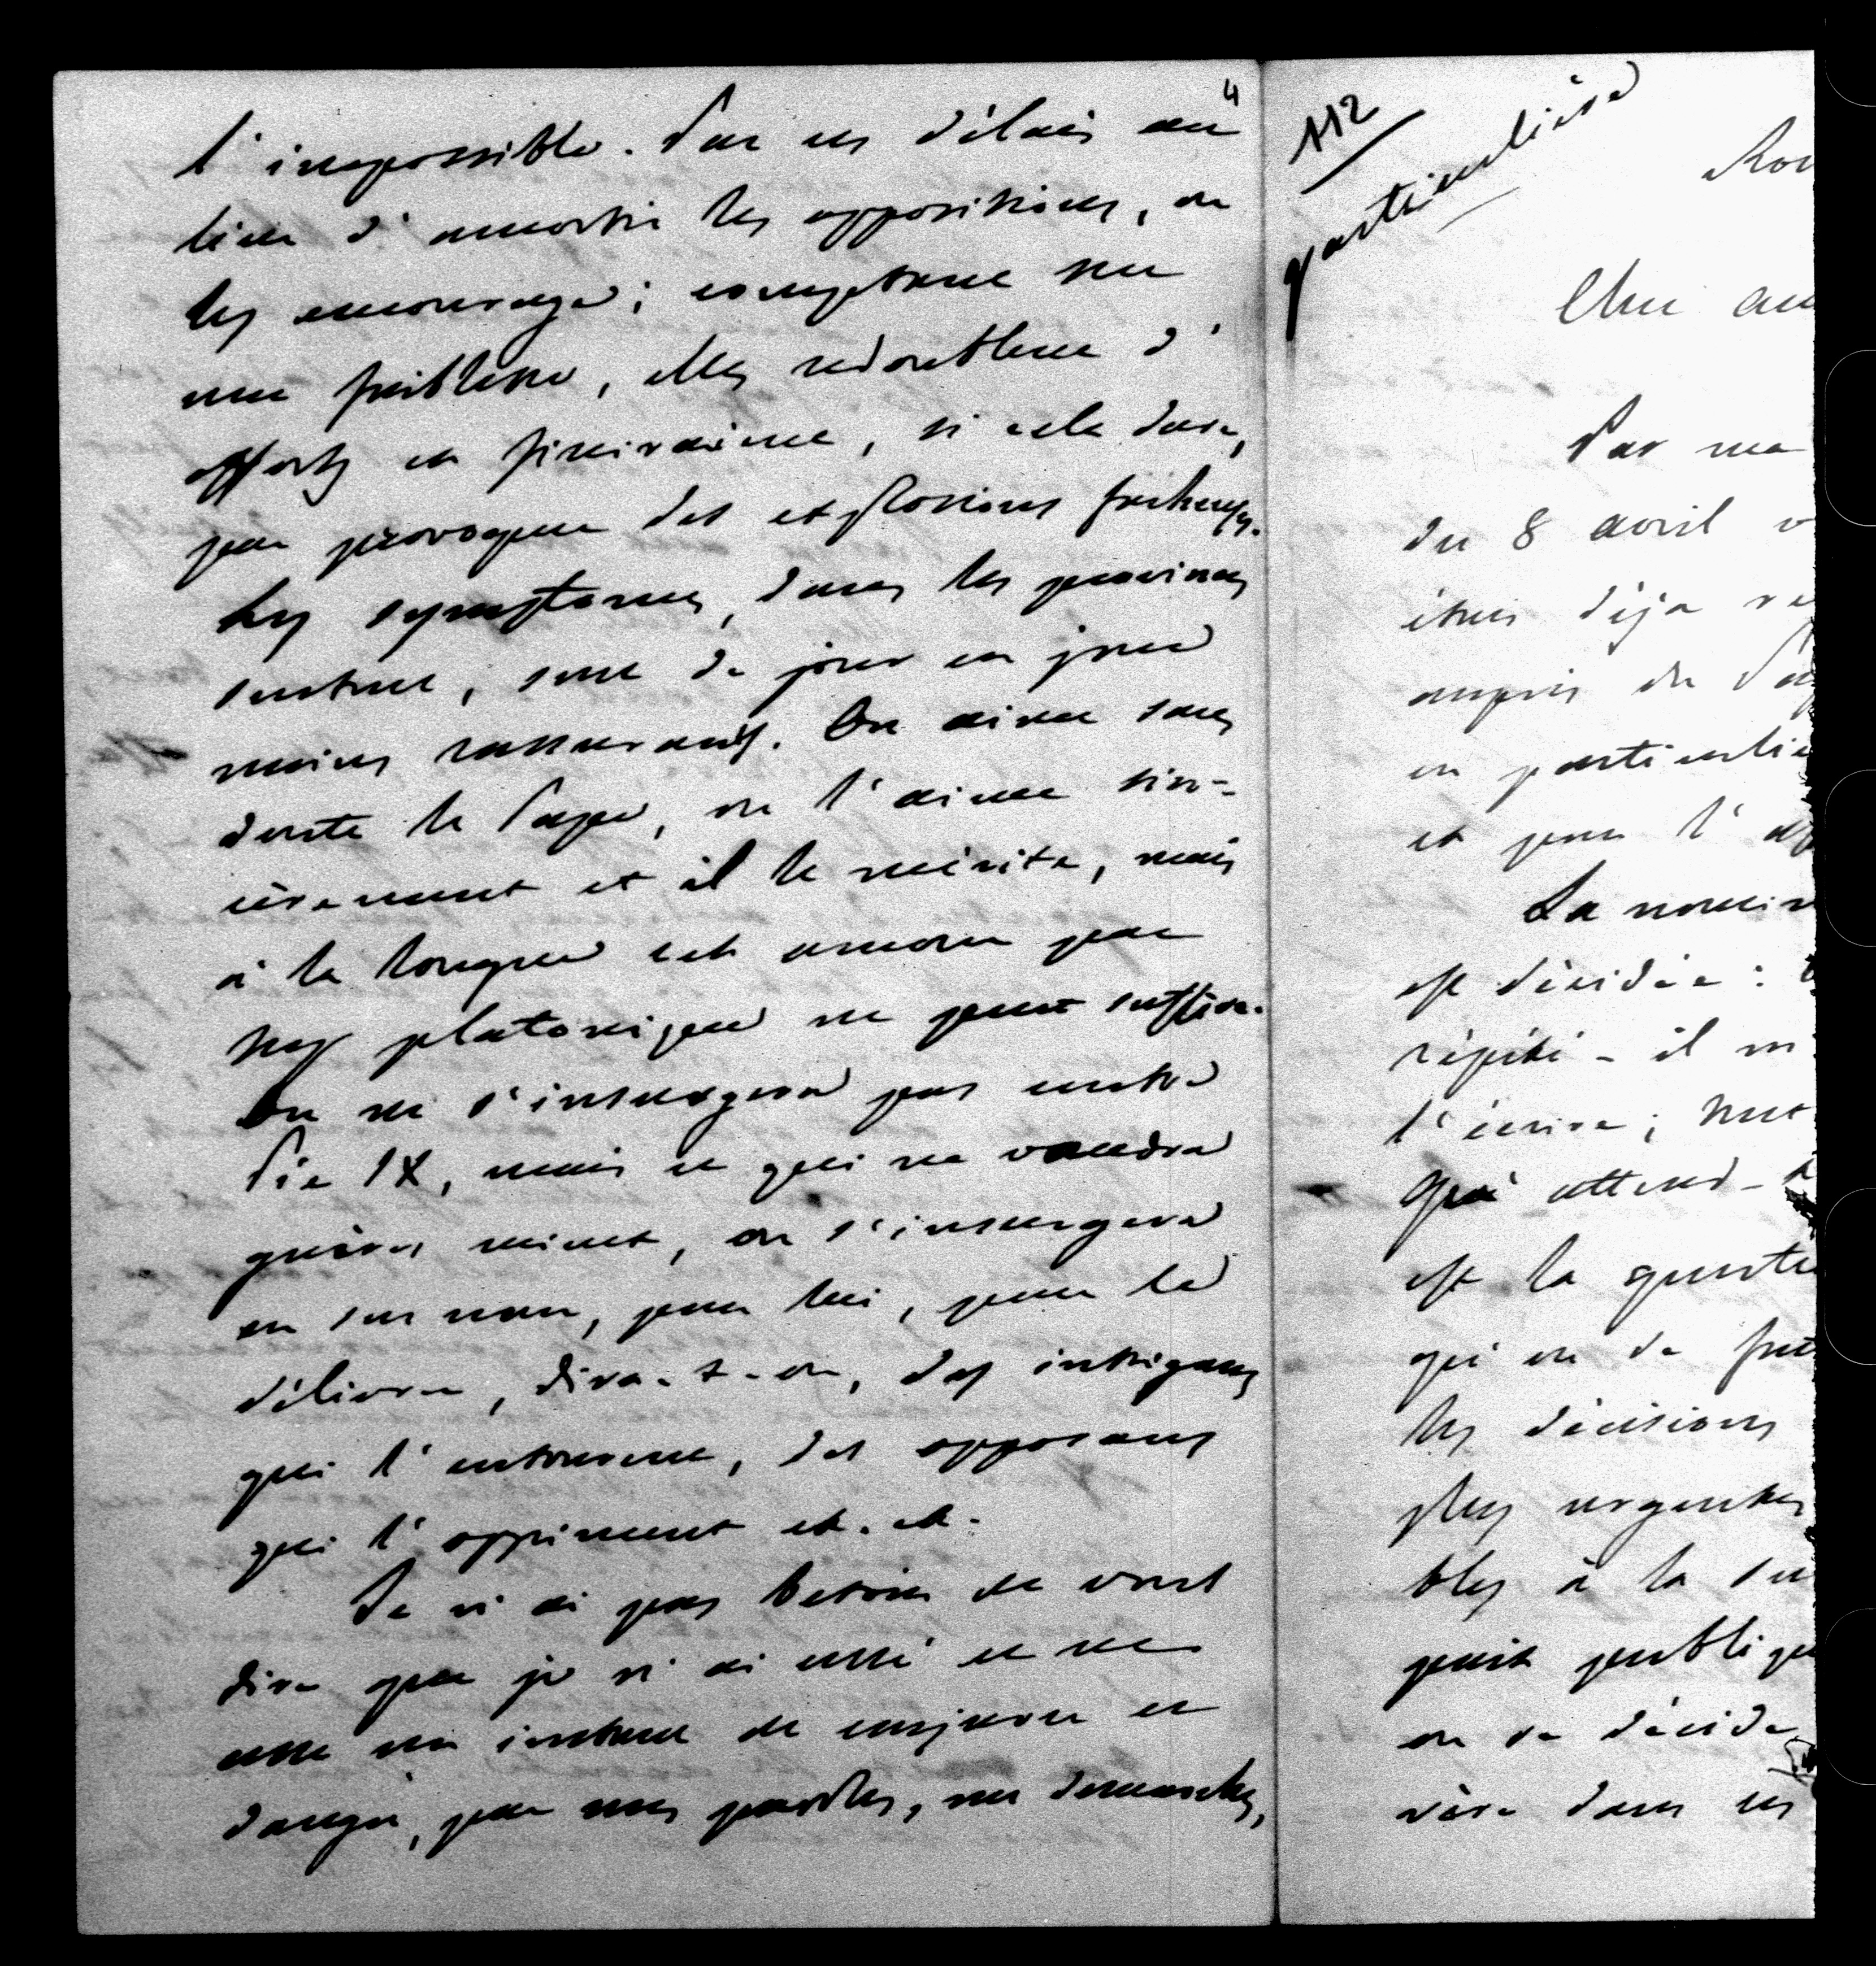 4
l'impossible. Par ces délais au
lieu d'amortir les oppositions, on
les encourage; comptant sur
une faiblesse, elles redoublent d'
efforts et finiraient, si cela dure,
par provoquer des explosions fâcheuses.
Les symptômes, dans les provinces
surtout, sont de jour en jour
moins rassurants. On aime sans
doute le Pape, on l'aime sin-
cèrement et il le mérite, mais
à la longue cet amour par
trop platonique ne peut suffire.
On ne s'insurgera pas contre
Pie IX, mais ce qui ne vaudra
guères mieux, on s'insurgera
en son nom, pour lui, pour le
délivrer, dira-t-on, des intrigans
qui l'entourent, des opposans
qui l'oppriment et. et.
Je n'ai pas besoin de vous
dire que je n'ai cessé et ne
cesse un instant de conjurer ce
danger, par mes paroles, mes demarches,
112
particulière
Rom
Cher am
Par ma
du 8 avril v
étais déjà re
auprès du Pap
en particulie
et pour l'
La nomin
est décidée:
répété - il m
l'écrire;
Qu'attend-
est la questi
qu'on se fait
les décisions
plus urgentes
bles à la
pait publique
on se décide
vère dans les